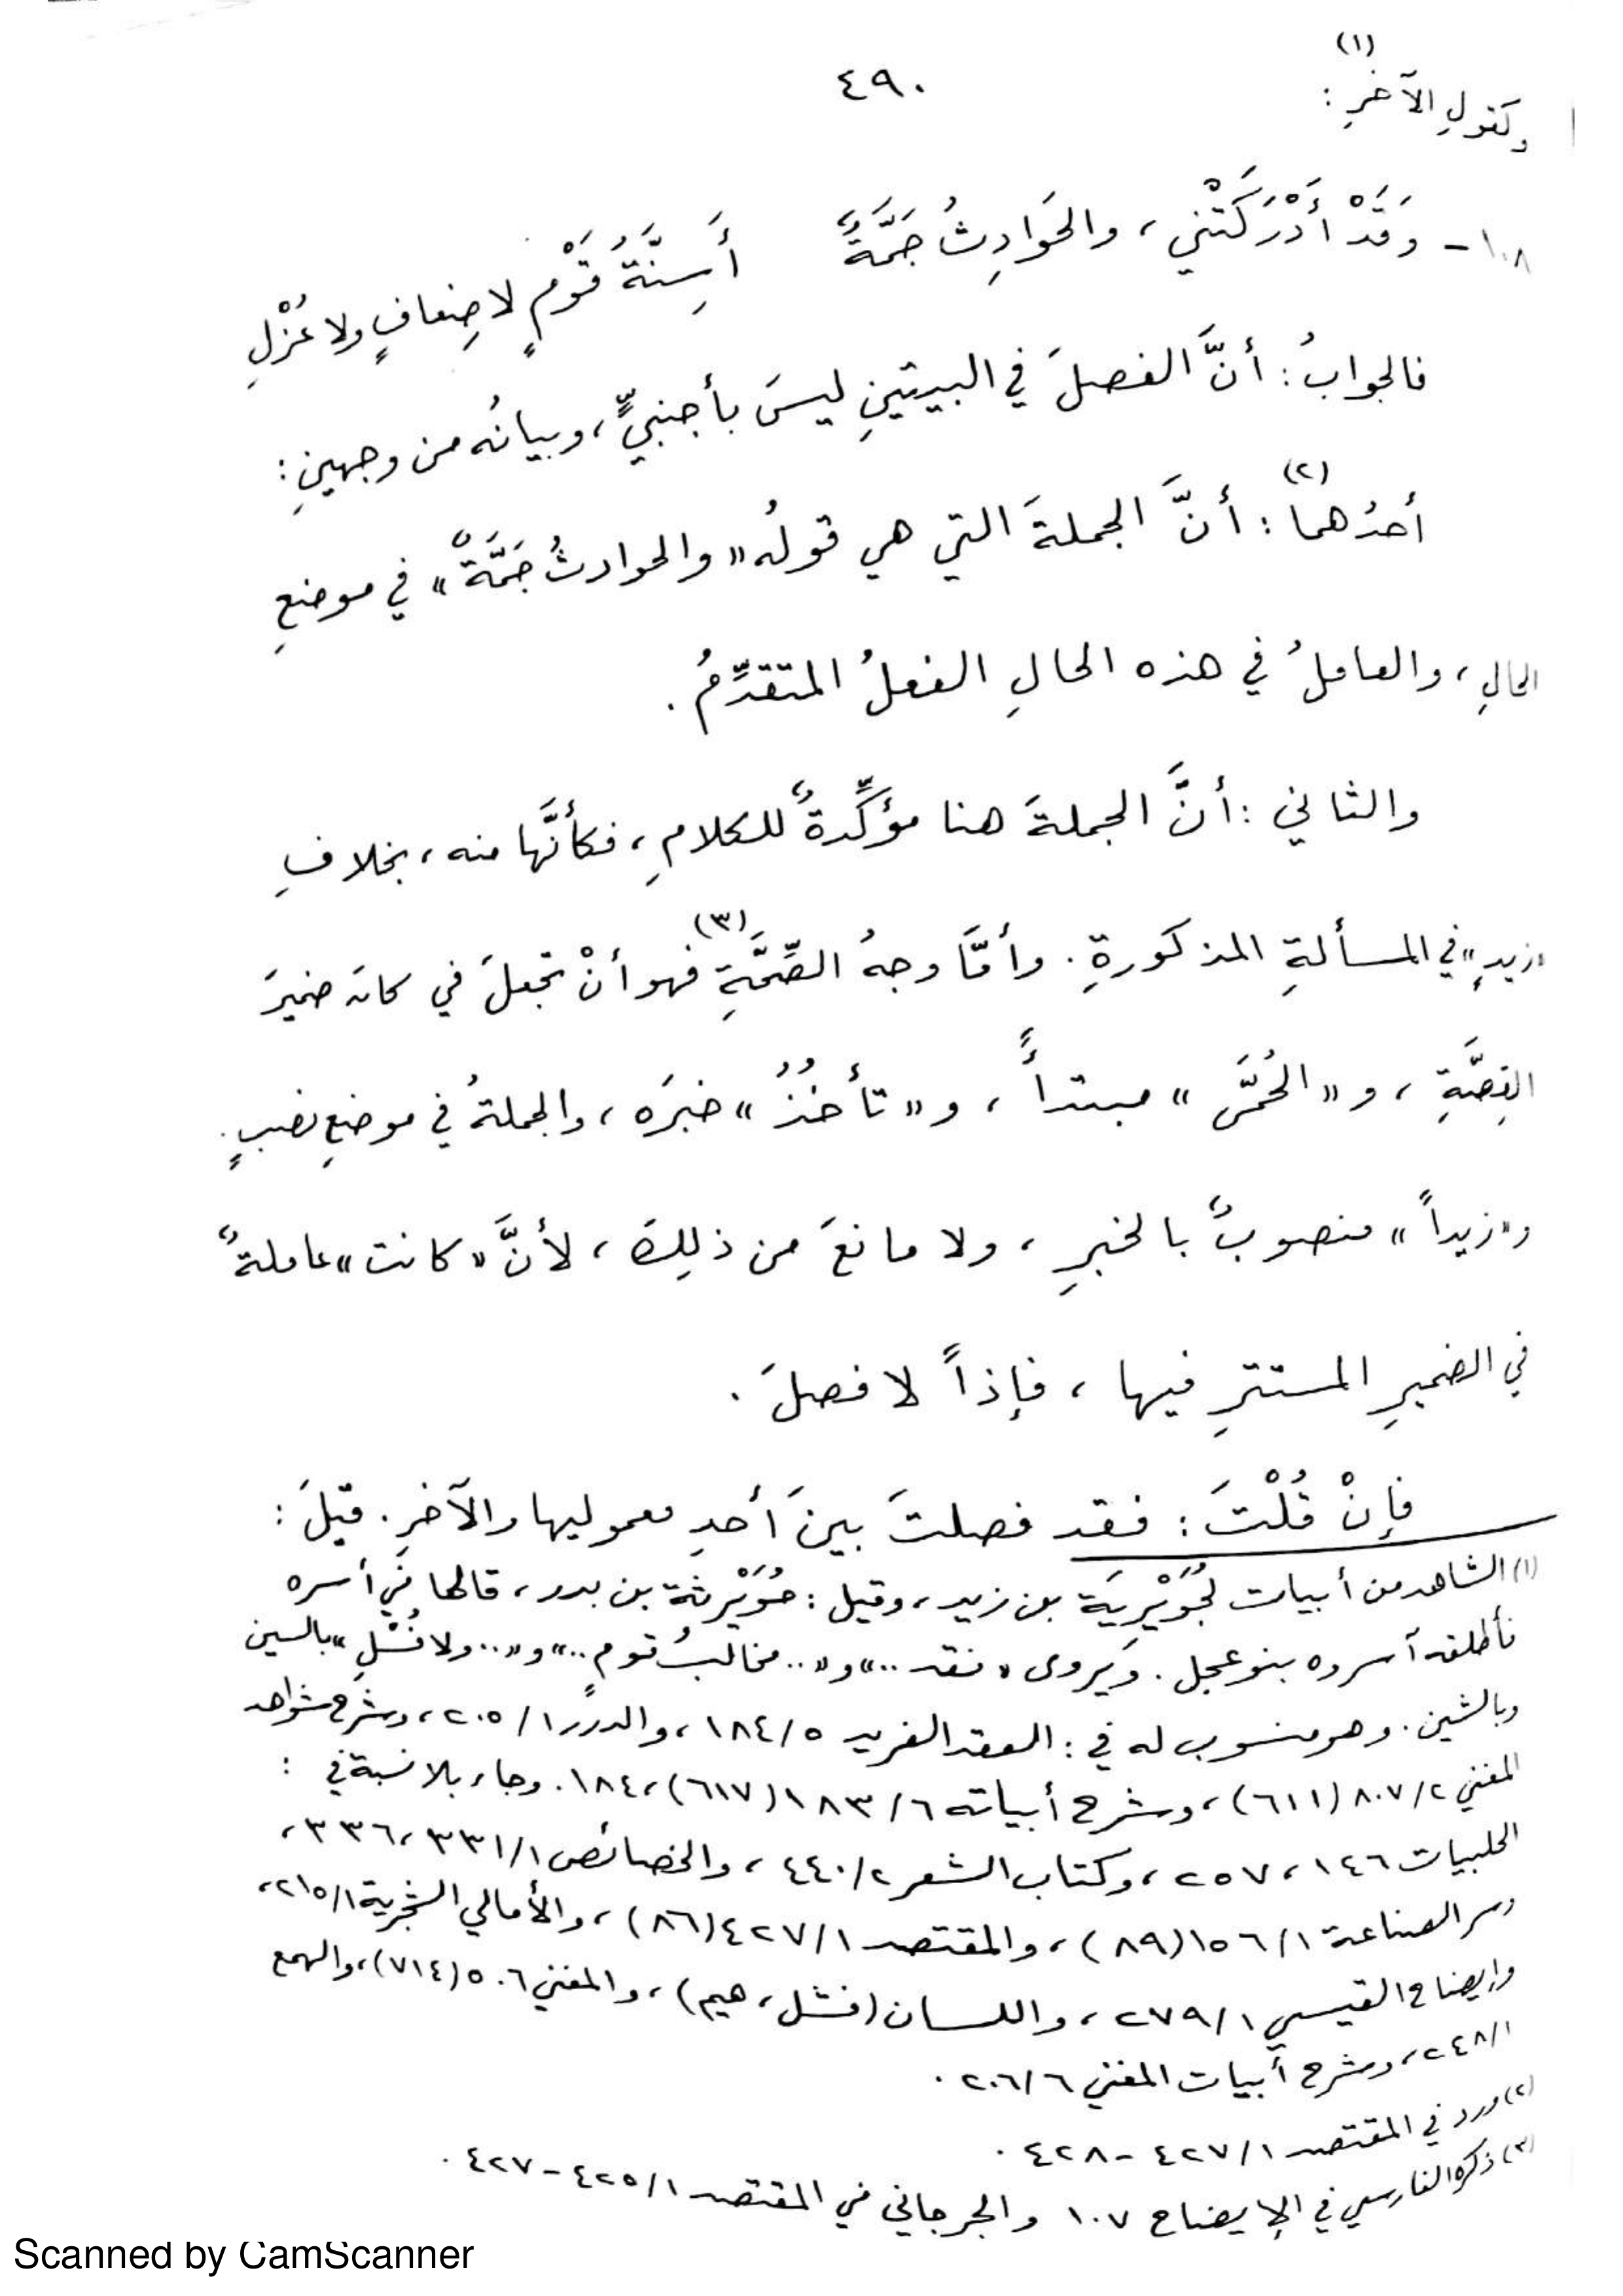 ٤٩٠
وكقولِ الآخرِ (١) :
١٠٨ - وَقَدْ أَدْرَكَتْني ، والحَوَادِثُ جَمَّةٌ أَسِنَّةُ قَوْمٍ لا ضِعافٍ ولا عُزْلِ
فالجوابُ : أنَّ الفصلَ في البيتينِ ليسَ بأجنبيٍّ ، وبيانُه من وجهينِ :
أحدُهما (٢) : أنَّ الجملةَ التي هي قولُه « والحوادثُ جَمَّةٌ » في موضعِ
الحالِ ، والعاملُ في هذه الحالِ الفعلُ المتقدِّمُ .
والثاني : أنَّ الجملةَ هنا مؤكِّدةٌ للكلامِ ، فكأنَّها منه ، بخلافِ
«زيدٍ» في المسألةِ المذكورةِ . وأمَّا وجهُ الصِّحَّةِ (٣) فهو أنْ تجعلَ في كانَ ضميرَ
القِصَّةِ ، و « الحُمَّى » مبتدأً ، و « تأخُذُ » خبرَه ، والجملةُ في موضعِ نصبٍ .
و«زيداً » منصوبٌ بالخبرِ ، ولا مانعَ من ذلِكَ ، لأنَّ « كانت » عاملةٌ
في الضميرِ المستترِ فيها ، فإذاً لا فصلَ .
فإنْ قُلْتَ : فقد فصلتَ بينَ أحدِ معموليها والآخرِ . قيلَ :
(١) الشاهد من أبيات لجُوَيْرِيَة بن زيد ، وقيل : حُوَيْرِثة بن بدر ، قالها في أسره
فأطلقه آسروه بنو عجل . ويروى « فقد .. » و « .. مخالبُ قومٍ .. » و « .. ولا فُسْلِ » بالسين
وبالشين . وهو منسوب له في : العقد الفريد ١٨٤/٥ ، والدرر ٢٠٥/١ ، وشرح شواهد
المغني ٨٠٧/٢ (٦١١) ، وشرح أبياته ١٨٣/٦ (٦١٧) ، ١٨٤ . وجاء بلا نسبة في :
الحلبيات ١٤٦ ، ٢٥٧ ، وكتاب الشعر ٤٤٠/٢ ، والخصائص ٣٣١/١ ، ٣٣٦ ،
وسر الصناعة ١٥٦/١ (٨٩) ، والمقتصد ٤٢٧/١ (٨٦) ، والأمالي الشجرية ٢١٥/١ ،
وإيضاح القيسي ٢٧٩/١ ، واللسان (فشل ، هيم) ، والمغني ٥٠٦ (٧١٤) ، والهمع
٢٤٨/١ ، وشرح أبيات المغني ٢٠٦/٦ .
(٢) ورد في المقتصد ٤٢٧/١ - ٤٢٨ .
(٣) ذكره الفارسي في الإيضاح ١٠٧ والجرجاني في المقتصد ٤٢٥/١ - ٤٢٧ .
Scanned by CamScanner